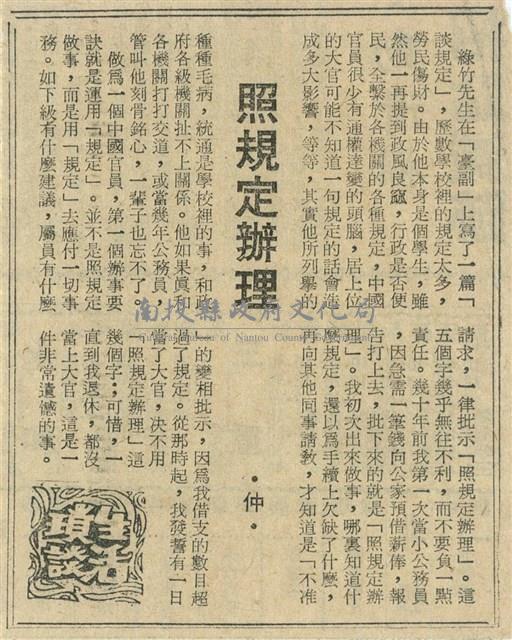 照規定辦理
•仲•
綠竹先生在「臺副」上寫了一篇「
談規定」，歷數學校裡的規定太多，
勞民傷財。由於他本身是個學生，雖
然他一再提到政風良窳，行政是否便
民，全繫於各機關的各種規定，中國
官員很少有通權達變的頭腦，居上位
的大官可能不知道一句規定的話會造
成多大影響，等等，其實他所列舉的
種種毛病，統通是學校裡的事，和政
府各級機關扯不上關係。他如果眞和
各機關打打交道，或當幾年公務員，
管叫他刻骨銘心，一輩子也忘不了。
做爲一個中國官員，第一個辦事要
訣就是運用「規定」。並不是照規定
做事，而是用「規定」去應付一切事
務。如下級有什麼建議，屬員有什麼
請求，一律批示「照規定辦理」。這
五個字幾乎無往不利，而不要負一點
責任。幾十年前我第一次當小公務員
，因急需一筆錢向公家預借薪俸，報
告打上去，批下來的就是「照規定辦
理」。我初次出來做事，哪裏知道什
麼規定，還以爲手續上欠缺了什麼，
再向其他同事請教，才知道是「不准
」的變相批示，因爲我借支的數目超
過了規定。從那時起，我發誓有一日
當了大官，決不用
「照規定辦理」這
幾個字；可惜，一
直到我退休，都沒
當上大官，這是一
件非常遺憾的事。
生活
瑣談
南投縣政府文化局
Cultural Bureau of Nantou County Government